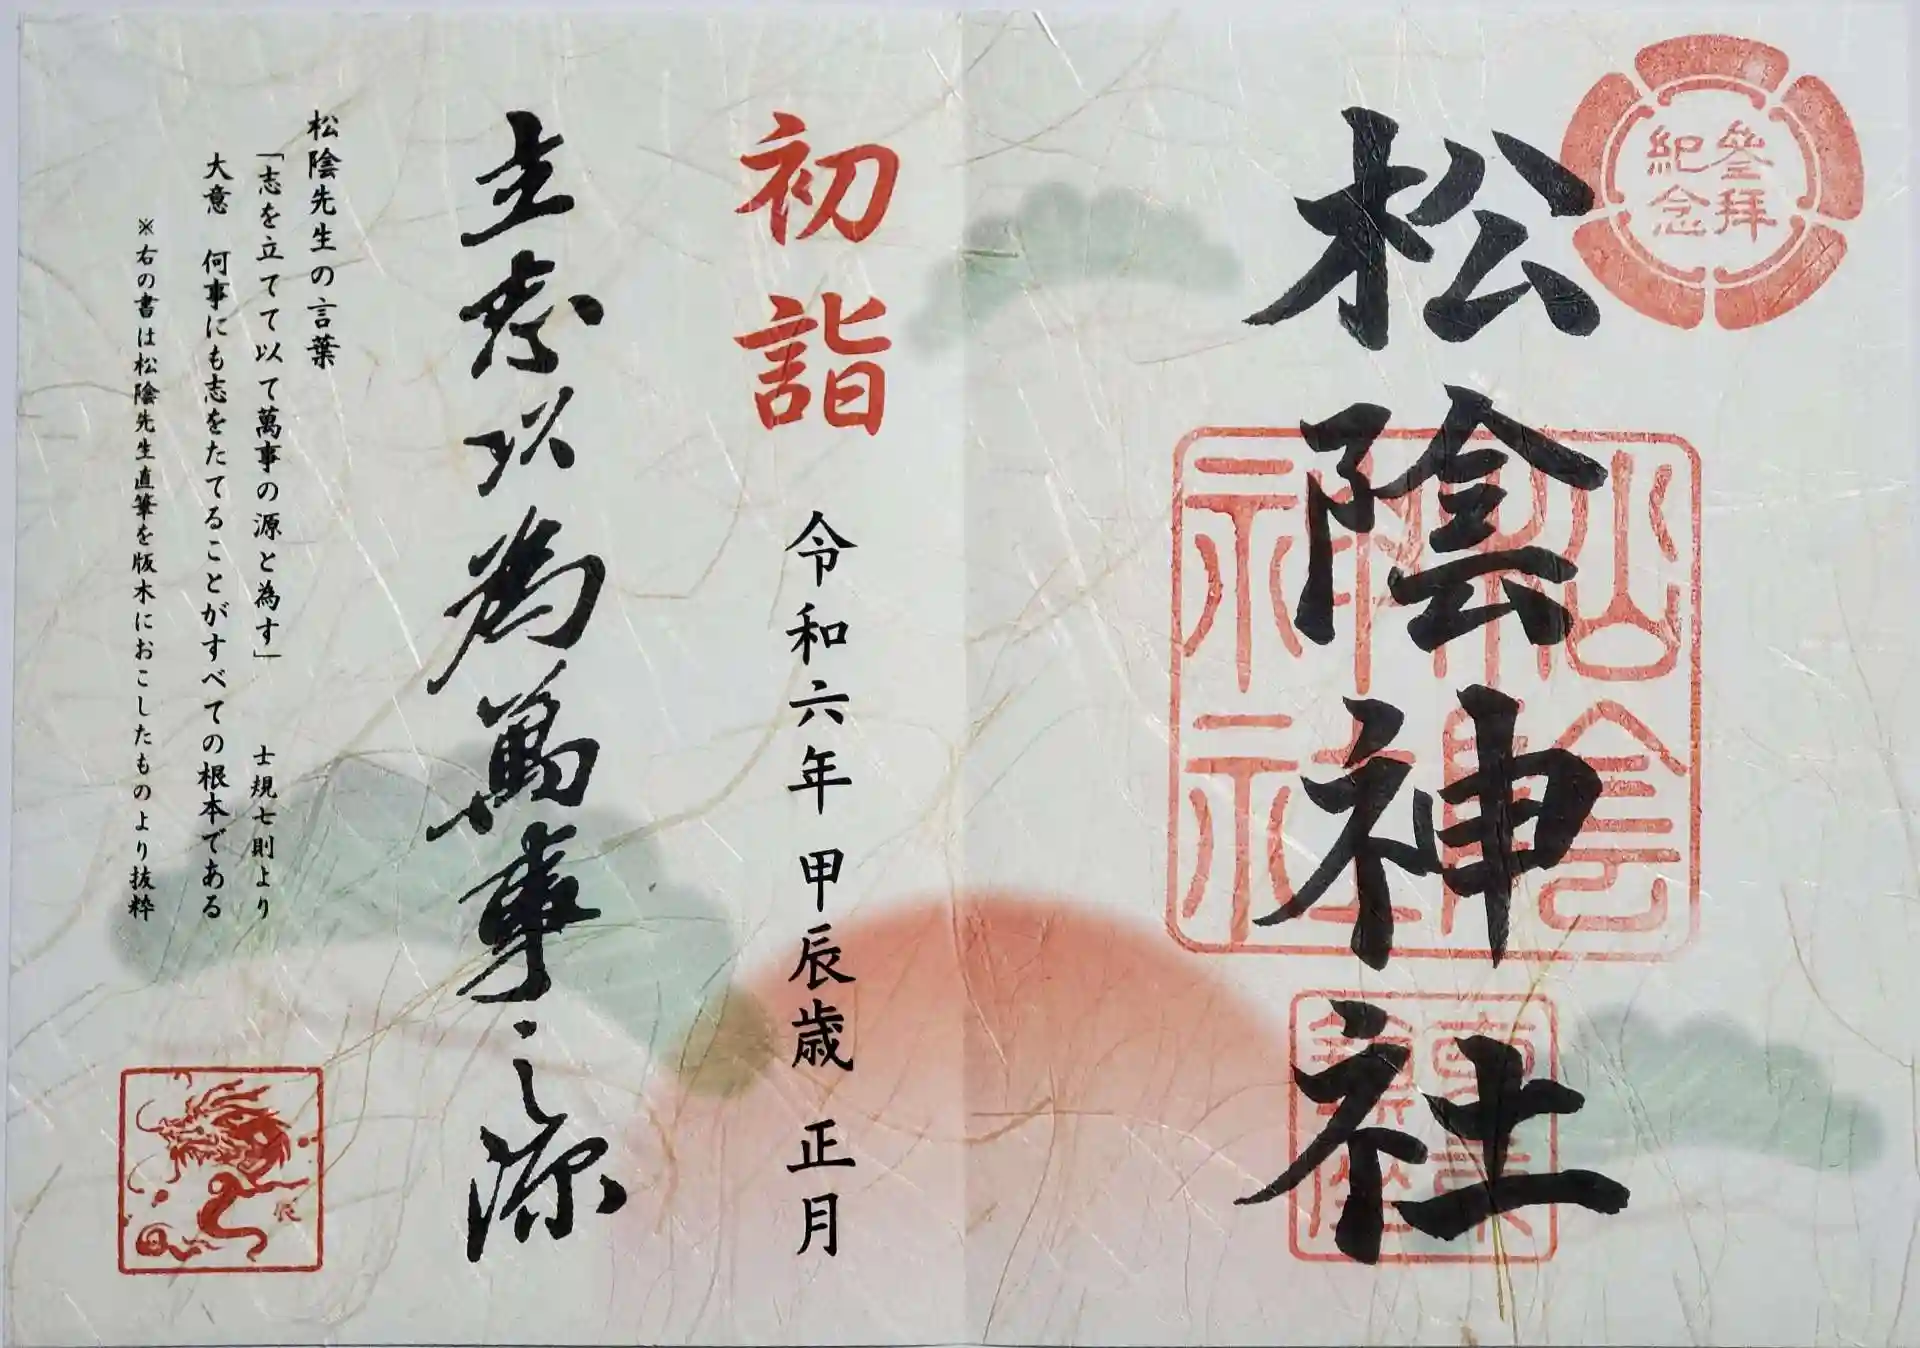 參拜
紀念
松陰神社
松陰
神社
初詣
令和六年 甲辰歳 正月
立志以為萬事之源
松陰先生の言葉
「志を立てて以て萬事の源と為す」 士規七則より
大意 何事にも志をたてることがすべての根本である
※右の書は松陰先生直筆を版木におこしたものより抜粋
辰